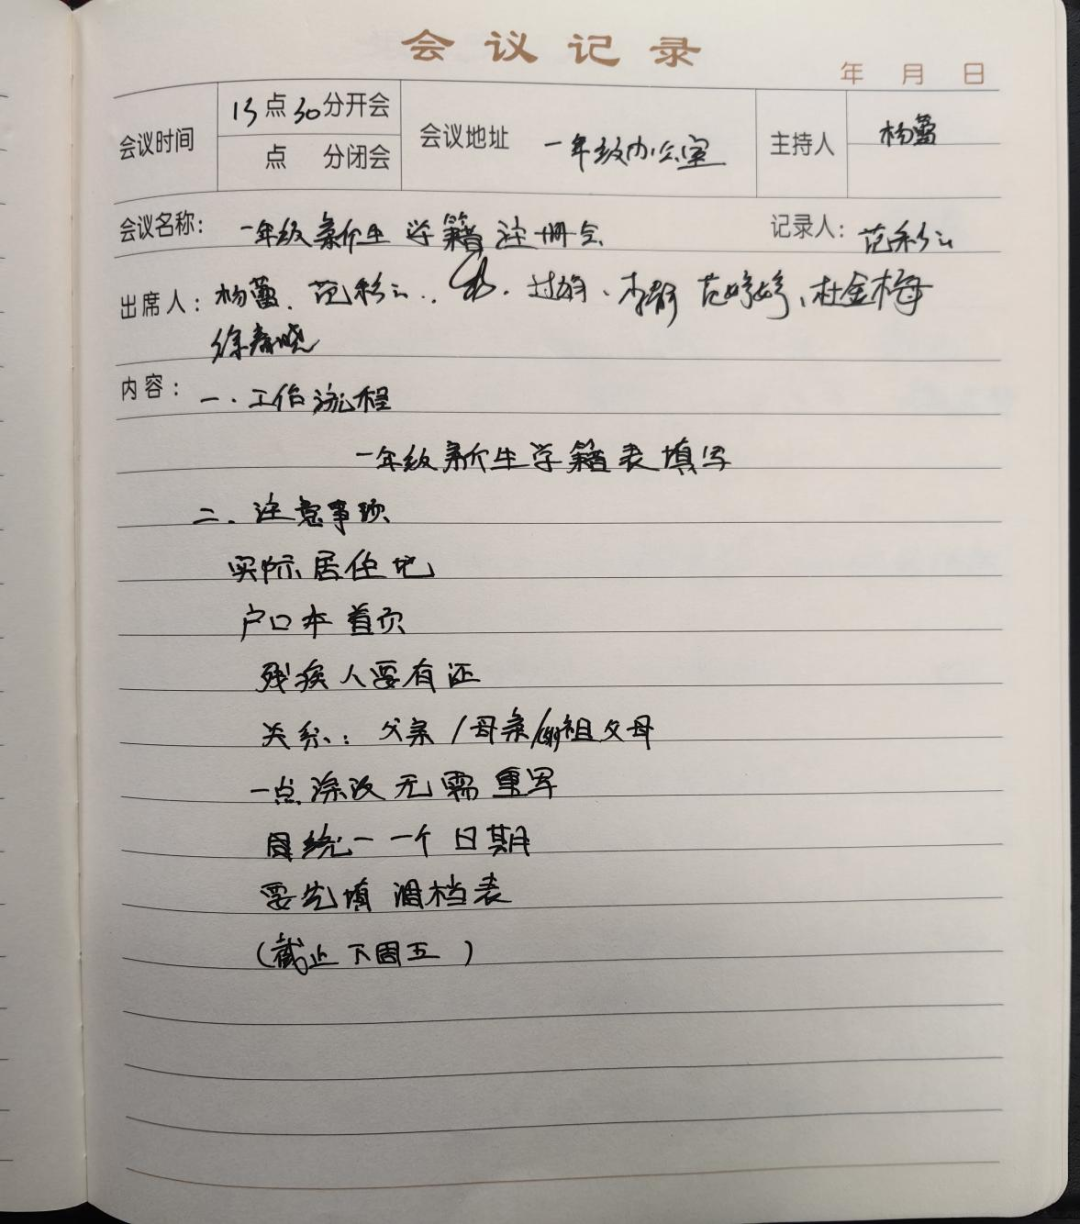 会议记录
年 月 日
会议时间 15点30分开会 会议地址 一年级办公室 主持人 杨蕾
点 分闭会
会议名称: 一年级新生学籍注册会 记录人: 范彩云
出席人: 杨蕾、范彩云、 范婷婷、杜金梅
徐春晓
内容: 一.工作流程
一年级新生学籍表填写
二.注意事项
实际居住地
户口本首页
残疾人要有证
关系:父亲/母亲/ 祖父母
一点涂改无需重写
统一一个日期
要先填调档表
(截止下周五)